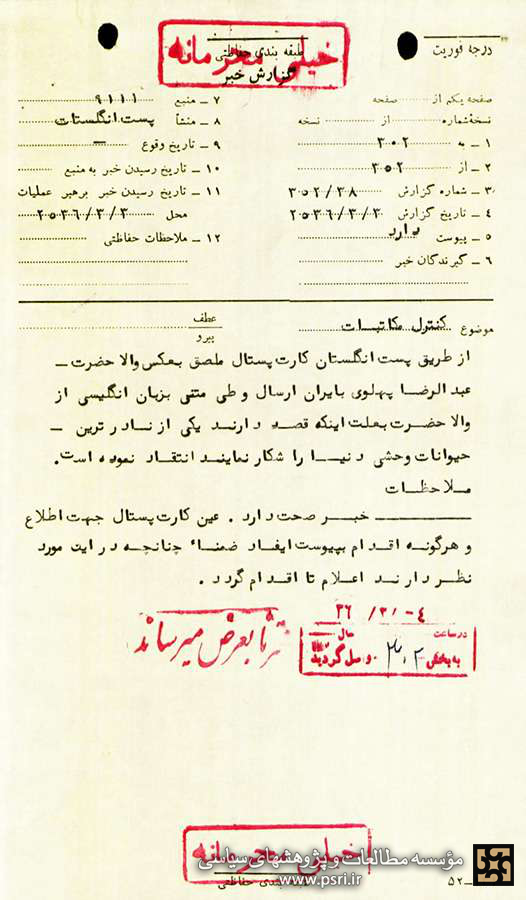 خیلی محرمانه
درجه فوریت
طبقه بندی حفاظتی
گزارش خبر
صفحه یکم از صفحه
نسخه شماره از نسخه
۱ ـ به ۳۰۲
۲ ـ از ۳۵۲
۳ ـ شماره گزارش ۳۵۲/۳۸
۴ ـ تاریخ گزارش ۲۵۳۶/۳/۳
۵ ـ پیوست دارد
۶ ـ گیرندگان خبر
۷ ـ منبع ۹۱۱۱
۸ ـ منشأ پست انگلستان
۹ ـ تاریخ وقوع ـ
۱۰ ـ تاریخ رسیدن خبر به منبع
۱۱ ـ تاریخ رسیدن خبر برهبر عملیات
محل ۲۵۳۶/۳/۳
۱۲ ـ ملاحظات حفاظتی
موضوع کنترل مکاتبات
عطف
پیرو
از طریق پست انگلستان کارت پستال ملصق بعکس والا حضرت ـ
عبد الرضا پهلوی بایران ارسال و طی متنی بزبان انگلیسی از
والا حضرت بعلت اینکه قصد دارند یکی از نادر ترین ـ
حیوانات وحشی دنیا را شکار نمایند انتقاد نموده است.
ملاحظات
خبر صحت دارد . عین کارت پستال جهت اطلاع
و هرگونه اقدام بپیوست ایفاد ضمناً چنانچه در این مورد
نظر دارند اعلام تا اقدام گردد .
بعرض میرساند
در ساعت سال
به بخش ۳۰۲ واصل گردید
خیلی محرمانه
بندی حفاظتی
مؤسسه مطالعات و پژوهشهای سیاسی
www.psri.ir
۵۲